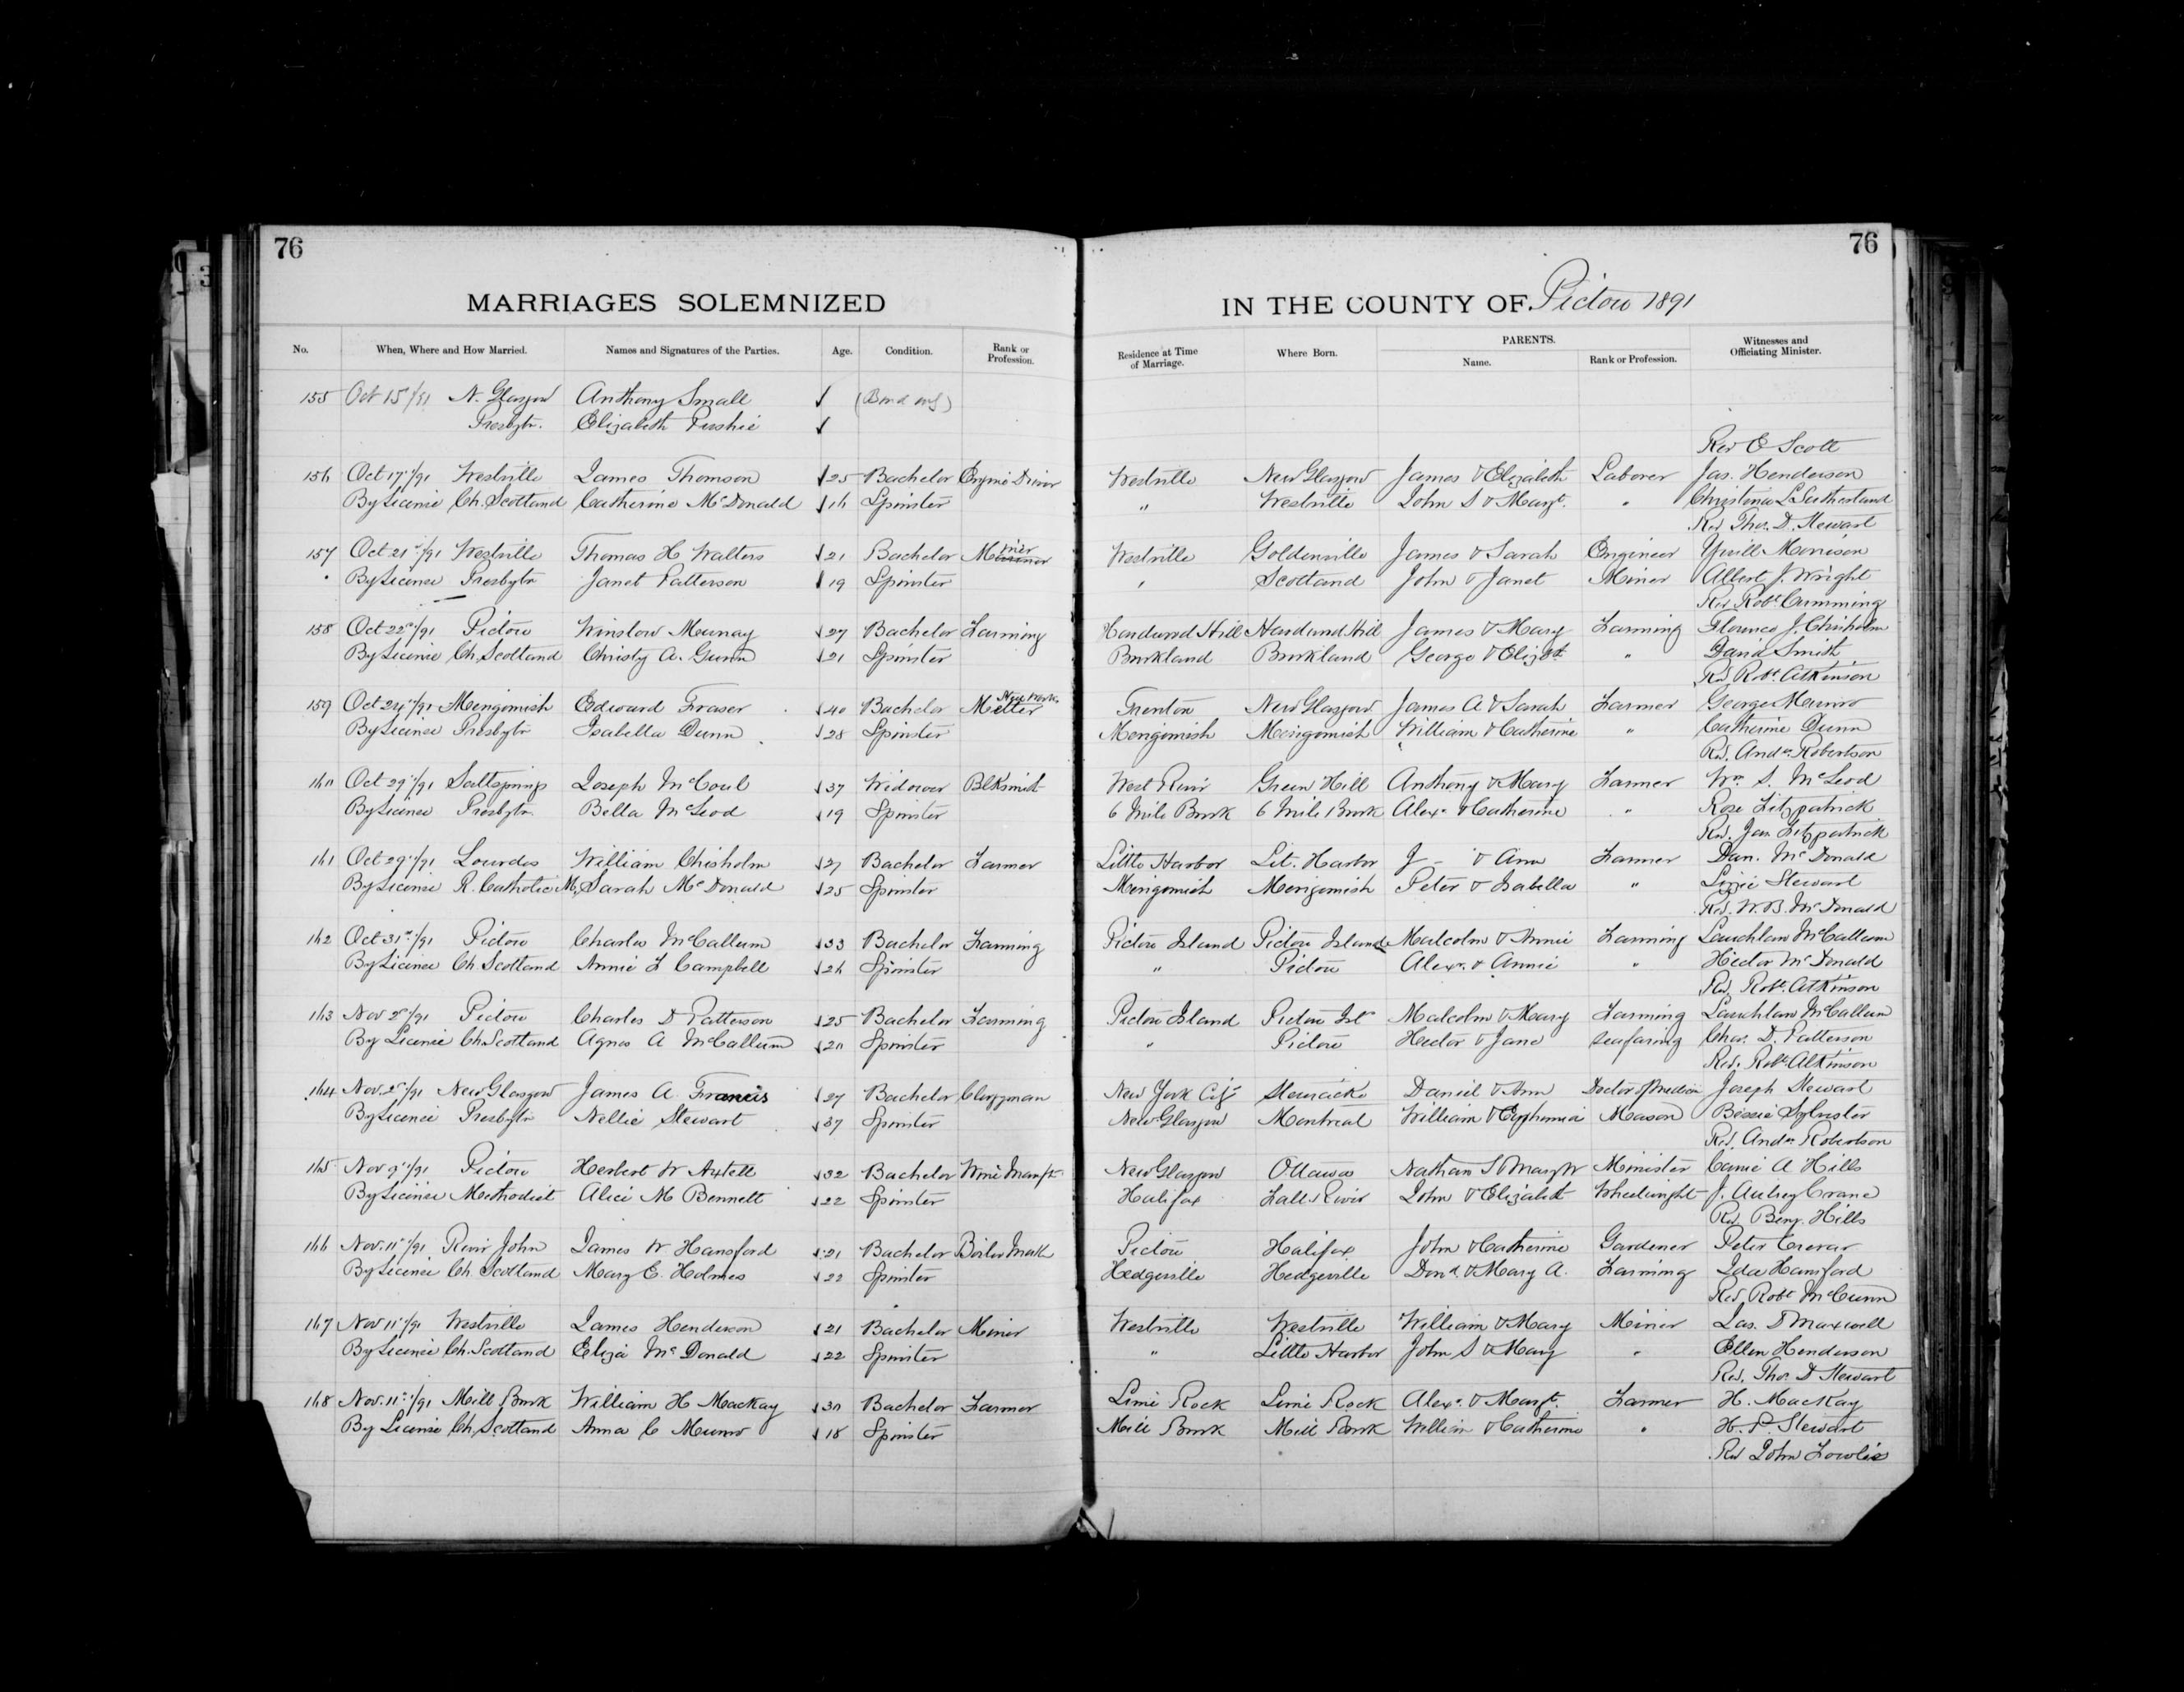 76
76
MARRIAGES SOLEMNIZED IN THE COUNTY OF Pictou 1891
No. When, Where and How Married. Names and Signatures of the Parties. Age. Condition. Rank or Profession. Residence at Time of Marriage. Where Born. PARENTS. Name. Rank or Profession. Witnesses and Officiating Minister.
155 Oct 15/91 N. Glasgow Anthony Small
Presbytn. Elizabeth
Rev E Scott
156 Oct 17/91 Westville James Thomson 25 Bachelor Engine Driver Westville New Glasgow James & Elizabeth Laborer Jas. Henderson
By Licence Ch. Scotland Catherine McDonald 16 Spinster " Westville John S & Margt. " Christena L Sutherland
Rev. Thos. D. Stewart
157 Oct 21/91 Westville Thomas H Walters 21 Bachelor Miner Westville Goldenville James & Sarah Engineer Morrison
By Licence Presbytn Janet Patterson 19 Spinster " Scotland John & Janet Miner Albert J. Wright
Rev Robt. Cumming
158 Oct 22/91 Pictou Winslow Murray 27 Bachelor Farming Hardwood Hill Hardwood Hill James & Mary Farming Florence J. Chisholm
By Licence Ch. Scotland Christy A. Gunn 21 Spinster Brookland Brookland George & Elizbt. " David Smith
Rev Robt. Atkinson
159 Oct 24/91 Merigomish Edward Fraser 40 Bachelor Trenton New Glasgow James A & Sarah Farmer George Munro
By Licence Presbytn Isabella Dunn 28 Spinster Merigomish Merigomish William & Catherine " Catherine Dunn
Rev. Andw. Robertson
160 Oct 29/91 Saltsprings Joseph McCoul 37 Widower Blksmith West River Green Hill Anthony & Mary Farmer Wm. S. McLeod
By Licence Presbytn. Bella McLeod 19 Spinster 6 Mile Brook 6 Mile Brook Alexr. & Catherine " Rose Fitzpatrick
Rev. Jas Fitzpatrick
161 Oct 29/91 Lourdes William Chisholm 27 Bachelor Farmer Little Harbor Lit. Harbor J - & Ann Farmer Dan. McDonald
By Licence R. Catholic M. Sarah McDonald 25 Spinster Merigomish Merigomish Peter & Isabella " Lizzie Stewart
Rev. W. B. McDonald
162 Oct 31/91 Pictou Charles McCallum 33 Bachelor Farming Pictou Island Pictou Island Malcolm & Annie Farming Lauchlan McCallum
By Licence Ch. Scotland Annie F Campbell 26 Spinster " Pictou Alexr. & Annie " Hector McDonald
Rev. Robt. Atkinson
163 Nov 2/91 Pictou Charles D Patterson 25 Bachelor Farming Pictou Island Pictou Isl Malcolm & Mary Farming Lauchlan McCallum
By Licence Ch. Scotland Agnes A McCallum 20 Spinster " Pictou Hector & Jane Seafaring Chas. D. Patterson
Rev. Robt Atkinson
164 Nov. 2/91 New Glasgow James A Francis 27 Bachelor Clergyman New York City Stewiacke Daniel & Ann Doctor of Medicin Joseph Stewart
By Licence Presbytn Nellie Stewart 37 Spinster New Glasgow Montreal William & Euphemia Mason Bessie Sylvester
Rev. Andw Robertson
165 Nov 9/91 Pictou Herbert W Axtell 32 Bachelor Wine Manft New Glasgow Ottawa Nathan S & Mary W Minister Carrie A Hills
By Licence Methodist Alice M Bennett 22 Spinster Halifax Falls River John & Elizabeth Wheelwright J. Aubrey Crane
Rev. Benj. Hills
166 Nov. 11/91 River John James W Hansford 21 Bachelor Boiler Mak Pictou Halifax John & Catherine Gardener Peter Crerar
By Licence Ch. Scotland Mary E. Holmes 22 Spinster Hedgeville Hedgeville Dond. & Mary A. Farming Ida Hansford
Rev. Robt McCunn
167 Nov 11/91 Westville James Henderson 21 Bachelor Miner Westville Westville William & Mary Miner Jas. D Maxwell
By Licence Ch. Scotland Eliza McDonald 22 Spinster " Little Harbor John S & Mary " Ellen Henderson
Rev. Thos. D Stewart
168 Nov. 11/91 Mill Brook William H MacKay 30 Bachelor Farmer Lime Rock Lime Rock Alexr. & Margt. Farmer H. MacKay
By Licence Ch. Scotland Anna C Munro 18 Spinster Mill Brook Mill Brook William & Catherine " H. P. Stewart
Rev John Fowlie